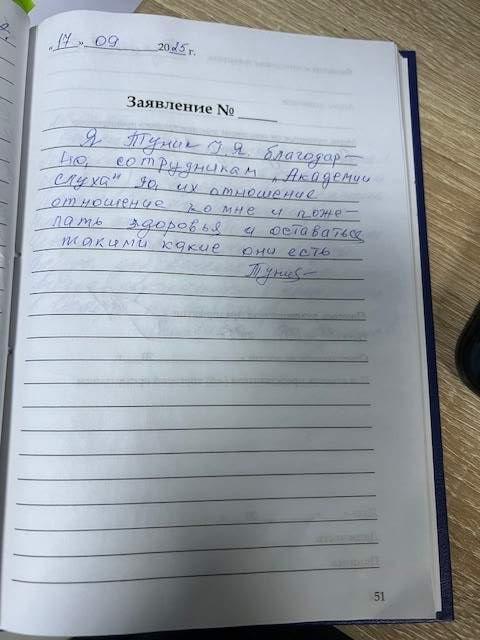 „17" 09 2025 г.
Заявление №
Я Туник Я благодар-
но, сотрудникам „Академии
слуха" за, их отношение
отношение ко мне и поже-
лать здоровья и оставаться
такими какие они есть
Туник
51